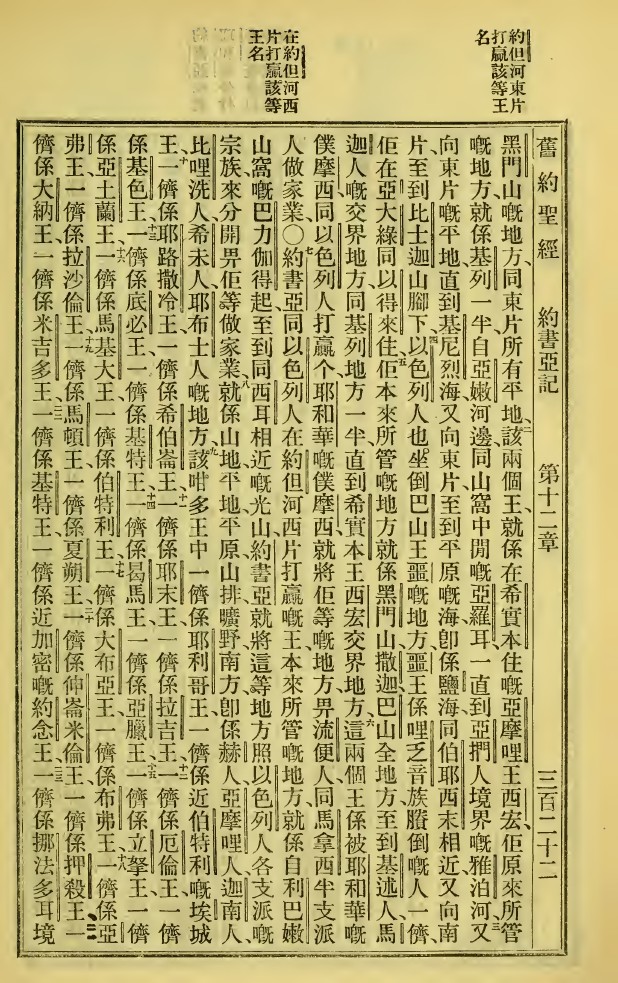 約但河東片
打贏該等王
名
在約但河西
片打贏該等
王名
舊約聖經 約書亞記 第十二章 三百二十二
黑門山嘅地方、同東片所有平地、二該兩個王、就係在希實本住嘅亞摩哩王西宏、佢原來所管
嘅地方就係基列一半自亞嫩河邊同山窩中間嘅亞羅耳一直到亞捫人境界嘅雅泊河、三又
向東片嘅平地、直到基尼烈海又向東片至到平原嘅海、卽係鹽海、同伯耶西末相近又向南
片、至到比士迦山腳下、四以色列人也坐倒巴山王噩嘅地方、噩王係哩乏音族賸倒嘅人一儕、
佢在亞大綠同以得來住、五佢本來所管嘅地方就係黑門山、撒迦、巴山全地方、至到基述人、馬
迦人嘅交界地方、同基列地方一半、直到希實本王西宏交界地方、六這兩個王係被耶和華嘅
僕摩西同以色列人打贏个、耶和華嘅僕摩西、就將佢等嘅地方畀流便人、同馬拿西半支派
人做家業○七約書亞同以色列人在約但河西片打贏嘅王、本來所管嘅地方、就係自利巴嫩
山窩嘅巴力伽得起、至到同西耳相近嘅光山、約書亞就將這等地方照以色列人各支派嘅
宗族來分開畀佢等做家業、八就係山地、平地、平原、山排、曠野、南方、卽係赫人、亞摩哩人、迦南人、
比哩洗人、希未人、耶布士人嘅地方、九該咁多王中一儕係耶利哥王、一儕係近伯特利嘅埃城
王、十一儕係耶路撒冷王、一儕係希伯崙王、十一一儕係耶末王、一儕係拉吉王、十二一儕係厄倫王、一儕
係基色王、十三一儕係底必王、一儕係基特王、十四一儕係曷馬王、一儕係亞臘王、十五一儕係立拏王、一儕
係亞土蘭王、十六一儕係馬基大王、一儕係伯特利王、十七一儕係大布亞王、一儕係布弗王、十八一儕係亞
弗王、一儕係拉沙倫王、十九一儕係馬頓王、一儕係夏朔王、二十一儕係伸崙米倫王、一儕係押殺王、二一一
儕係大納王、一儕係米吉多王、二二一儕係基特王、一儕係近加密嘅約念王、二三一儕係挪法多耳境